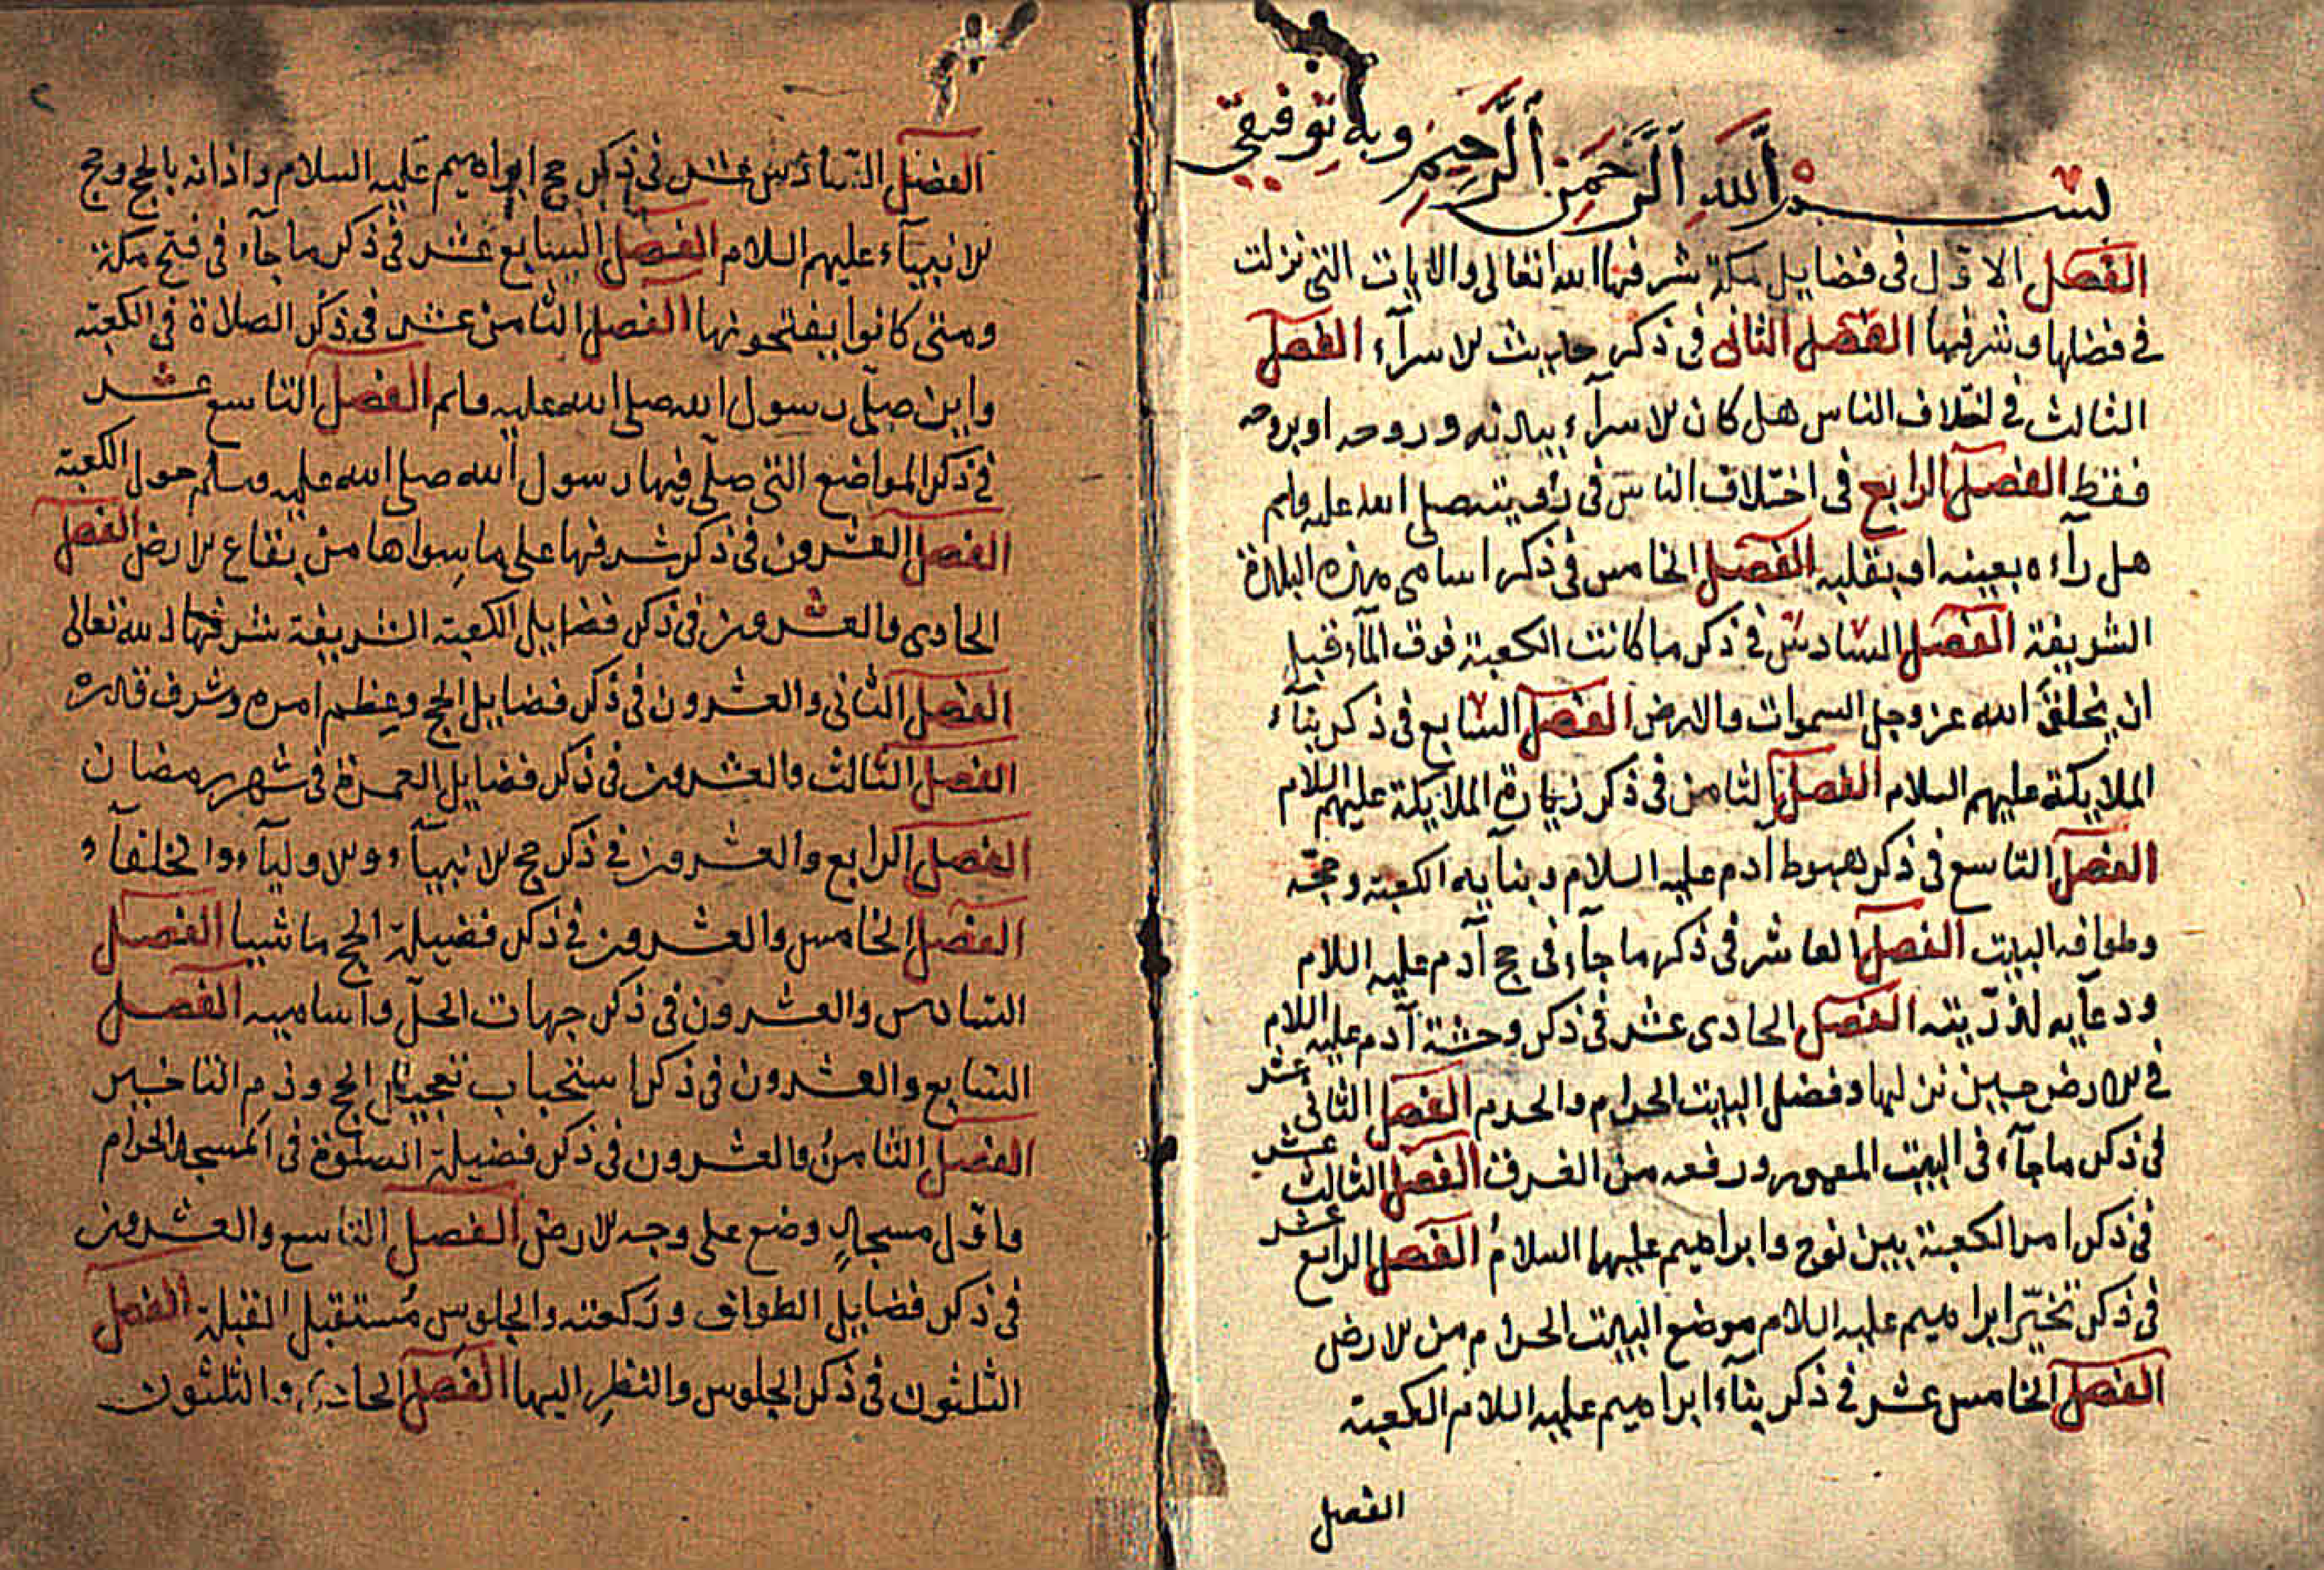 بسم الله الرحمن الرحيم وبه توفيقي
الفصل الاول في فضايل مكة شرفها الله تعالى والايات التي نزلت
في فضلها وشرفها الفصل الثاني في ذكر حديث الاسرآء الفصل
الثالث في اختلاف الناس هل كان الاسرآء ببدنه وروحه او بروحه
فقط الفصل الرابع في اختلاف الناس في رؤيته صلى الله عليه وسلم
هل رآه بعينه او بقلبه الفصل الخامس في ذكر اسامي هذه البلدة
الشريفة الفصل السادس في ذكر ما كانت الكعبة فوق المآء قبل
ان يخلق الله عز وجل السموات والارض الفصل السابع في ذكر بنآء
الملايكة عليهم السلام الفصل الثامن في ذكر زيارة الملايكة عليهم السلام
الفصل التاسع في ذكر هبوط آدم عليه السلام وبنآيه الكعبة وحجه
وطوافه البيت الفصل العاشر في ذكر ما جآء في حج آدم عليه السلام
ودعآيه لذريته الفصل الحادى عشر في ذكر وحشة آدم عليه السلام
في الارض حين نزلها وفضل البيت الحرام والحرم الفصل الثاني عشر
في ذكر ما جآء في البيت المعمور ورفعه من الغرق الفصل الثالث عشر
في ذكر امر الكعبة بين نوح وابراهيم عليهما السلام الفصل الرابع عشر
في ذكر تخير ابراهيم عليه السلام موضع البيت الحرام من الارض
الفصل الخامس عشر في ذكر بنآء ابراهيم عليه السلام الكعبة
الفصل
٢
الفصل السادس عشر في ذكر حج ابراهيم عليه السلام واذانه بالحج وحج
الانبيآء عليهم السلام الفصل السابع عشر في ذكر ما جآء في فتح مكة
ومتى كانوا يفتحونها الفصل الثامن عشر في ذكر الصلاة في الكعبة
واين صلى رسول الله صلى الله عليه وسلم الفصل التاسع عشر
في ذكر المواضع التي صلى فيها رسول الله صلى الله عليه وسلم حول الكعبة
الفصل العشرون في ذكر شرفها على ما سواها من بقاع الارض الفصل
الحادى والعشرون في ذكر فضايل الكعبة الشريفة شرفها الله تعالى
الفصل الثاني والعشرون في ذكر فضايل الحج وعظم امره وشرف قدره
الفصل الثالث والعشرون في ذكر فضايل العمرة في شهر رمضان
الفصل الرابع والعشرون في ذكر حج الانبيآء والاوليآء والخلفآء
الفصل الخامس والعشرون في ذكر فضيلة الحج ماشيا الفصل
السادس والعشرون في ذكر جهات الحل واساميه الفصل
السابع والعشرون في ذكر استحباب تعجيل الحج وذم التاخير
الفصل الثامن والعشرون في ذكر فضيلة الصلوة في المسجد الحرام
واول مسجد وضع على وجه الارض الفصل التاسع والعشرون
في ذكر فضايل الطواف وركعته والجلوس مستقبل القبلة الفصل
الثلثون في ذكر الجلوس والنظر اليها الفصل الحادى والثلثون